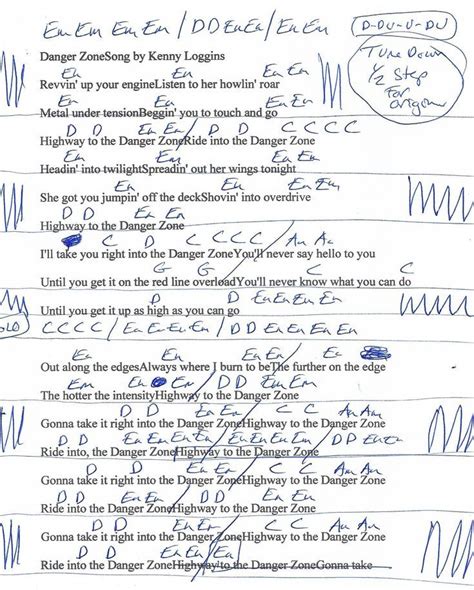 Em Em Em Em / D D Em Em / Em Em
D-DU-U-DU
Tune Down
1/2 Step
For
origan
Danger ZoneSong by Kenny Loggins
Em Em / Em Em
Revvin' up your engineListen to her howlin' roar
Em Em Em Em
Metal under tensionBeggin' you to touch and go
D D Em Em / D D C C C C
Highway to the Danger ZoneRide into the Danger Zone
Em Em / Em Em
Headin' into twilightSpreadin' out her wings tonight
Em Em / Em Em
She got you jumpin' off the deckShovin' into overdrive
D D Em Em
Highway to the Danger Zone
C D C C C / Am Am
I'll take you right into the Danger ZoneYou'll never say hello to you
G G / C C
Until you get it on the red line overloadYou'll never know what you can do
D D Em Em Em Em
Until you get it up as high as you can go
OLO C C C C / Em Em Em Em / D D Em Em Em Em
Em Em Em Em / Em
Out along the edgesAlways where I burn to beThe further on the edge
Em Em Em / D D Em Em
The hotter the intensityHighway to the Danger Zone
D D Em Em / C C Am Am
Gonna take it right into the Danger ZoneHighway to the Danger Zone
D D Em Em Em Em / Em Em Em Em / D D Em Em
Ride into, the Danger ZoneHighway to the Danger Zone
D D Em Em / C C Am Am
Gonna take it right into the Danger ZoneHighway to the Danger Zone
D D Em Em / D D Em Em
Ride into the Danger ZoneHighway to the Danger Zone
D D Em Em / C C Am Am
Gonna take it right into the Danger ZoneHighway to the Danger Zone
D D Em Em / Em
Ride into the Danger ZoneHighway to the Danger ZoneGonna take